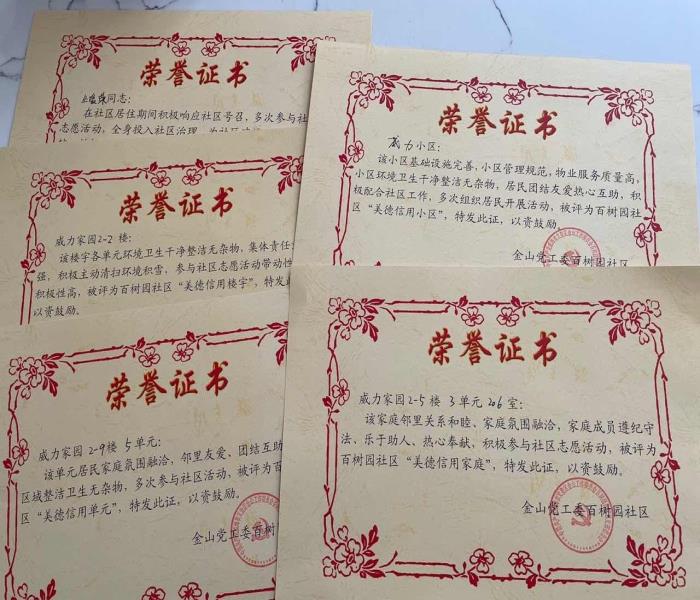 荣誉证书
同志：
在社区居住期间积极响应社区号召，多次参与社
志愿活动，全身投入社区治理，
荣誉证书
威力小区：
该小区基础设施完善，小区管理规范，物业服务质量高，
小区环境卫生干净整洁无杂物，居民团结友爱热心互助，积
极配合社区工作，多次组织居民开展活动，被评为百树园社
区“美德信用小区”，特发此证，以资鼓励。
金山党工委百树园社区
荣誉证书
威力家园2-2楼：
该楼宇各单元环境卫生干净整洁无杂物，集体责任
强，积极主动清扫环境积雪，参与社区志愿活动带动性
积极性高，被评为百树园社区“美德信用楼宇”，特发此
以资鼓励。
荣誉证书
威力家园2-9楼5单元：
该单元居民家庭氛围融洽，邻里友爱、团结互助
区域整洁卫生无杂物，多次参与社区活动，被评为百
区“美德信用单元”，特发此证，以资鼓励。
金山党工委百树
荣誉证书
威力家园2-5楼3单元206室：
该家庭邻里关系和睦、家庭氛围融洽，家庭成员遵纪守
法、乐于助人、热心奉献，积极参与社区志愿活动，被评为
百树园社区“美德信用家庭”，特发此证，以资鼓励。
金山党工委百树园社区